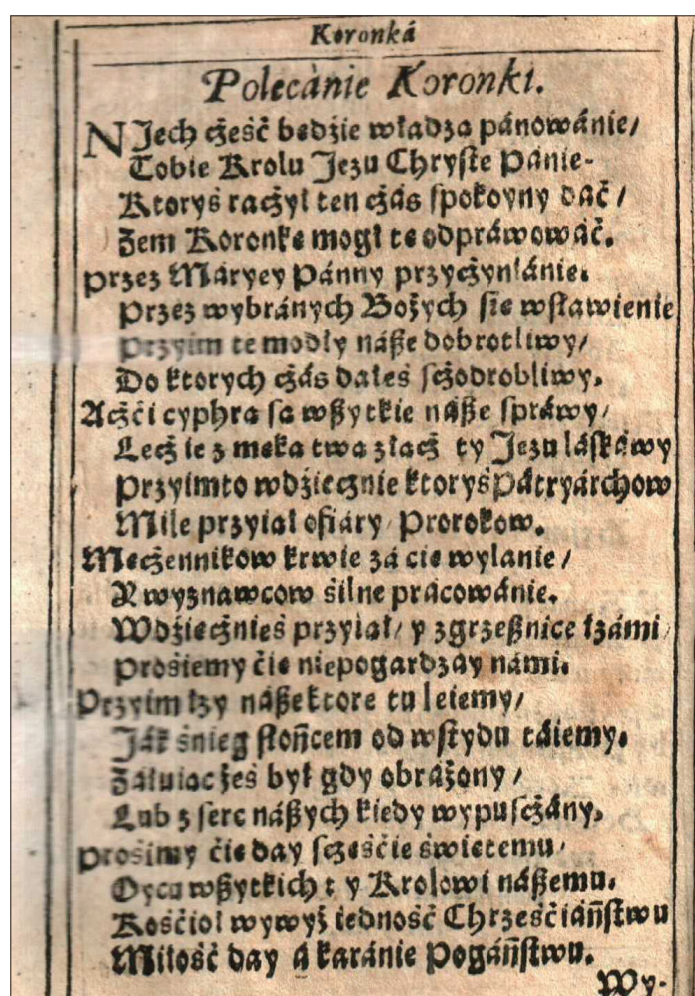 Koronká
Polecánie Koronki.
NJech cżeść bedżie władza pánowánie/
Tobie Krolu Jezu Chryste Panie-
Ktoryś racżył ten cżás spokoyny dać /
Zem Koronke mogł te odpráwowáć.
Przez Máryey Pánny przycżyniánie.
Przez wybránych Bożych sie wstawienie
Przyim te modły náße dobrotliwy/
Do ktorych cżás dałeś scżodrobliwy.
Acżći cyphra sa wßytkie náße spráwy/
Lecż ie z meka twa złacż ty Jezu láskáwy
Przyimto wdżiecznie ktoryś Pátryárchow
Mile przyiał ofiáry Prorokow.
Mecżennikow krwie zá cie wylanie/
Y wyznawcow śilne prácowánie.
Wdżiecżnieś przyiał/ y zgrzeßnice łzámi/
Prośiemy ćie niepogardzay námi.
Przyim łzy náße ktore tu leiemy/
Ják śnieg słońcem od wstydu táiemy.
Załuiac żeś był gdy obráżony /
Lub z serc náßych kiedy wypuscżány.
Prośimy ćie day scżeśćie świetemu/
Oycu wßytkich t y Krolowi náßemu.
Kośćioł wywyż iedność Chrześćiáństwu
Miłość day á karánie Pogáństwu.
Wy-